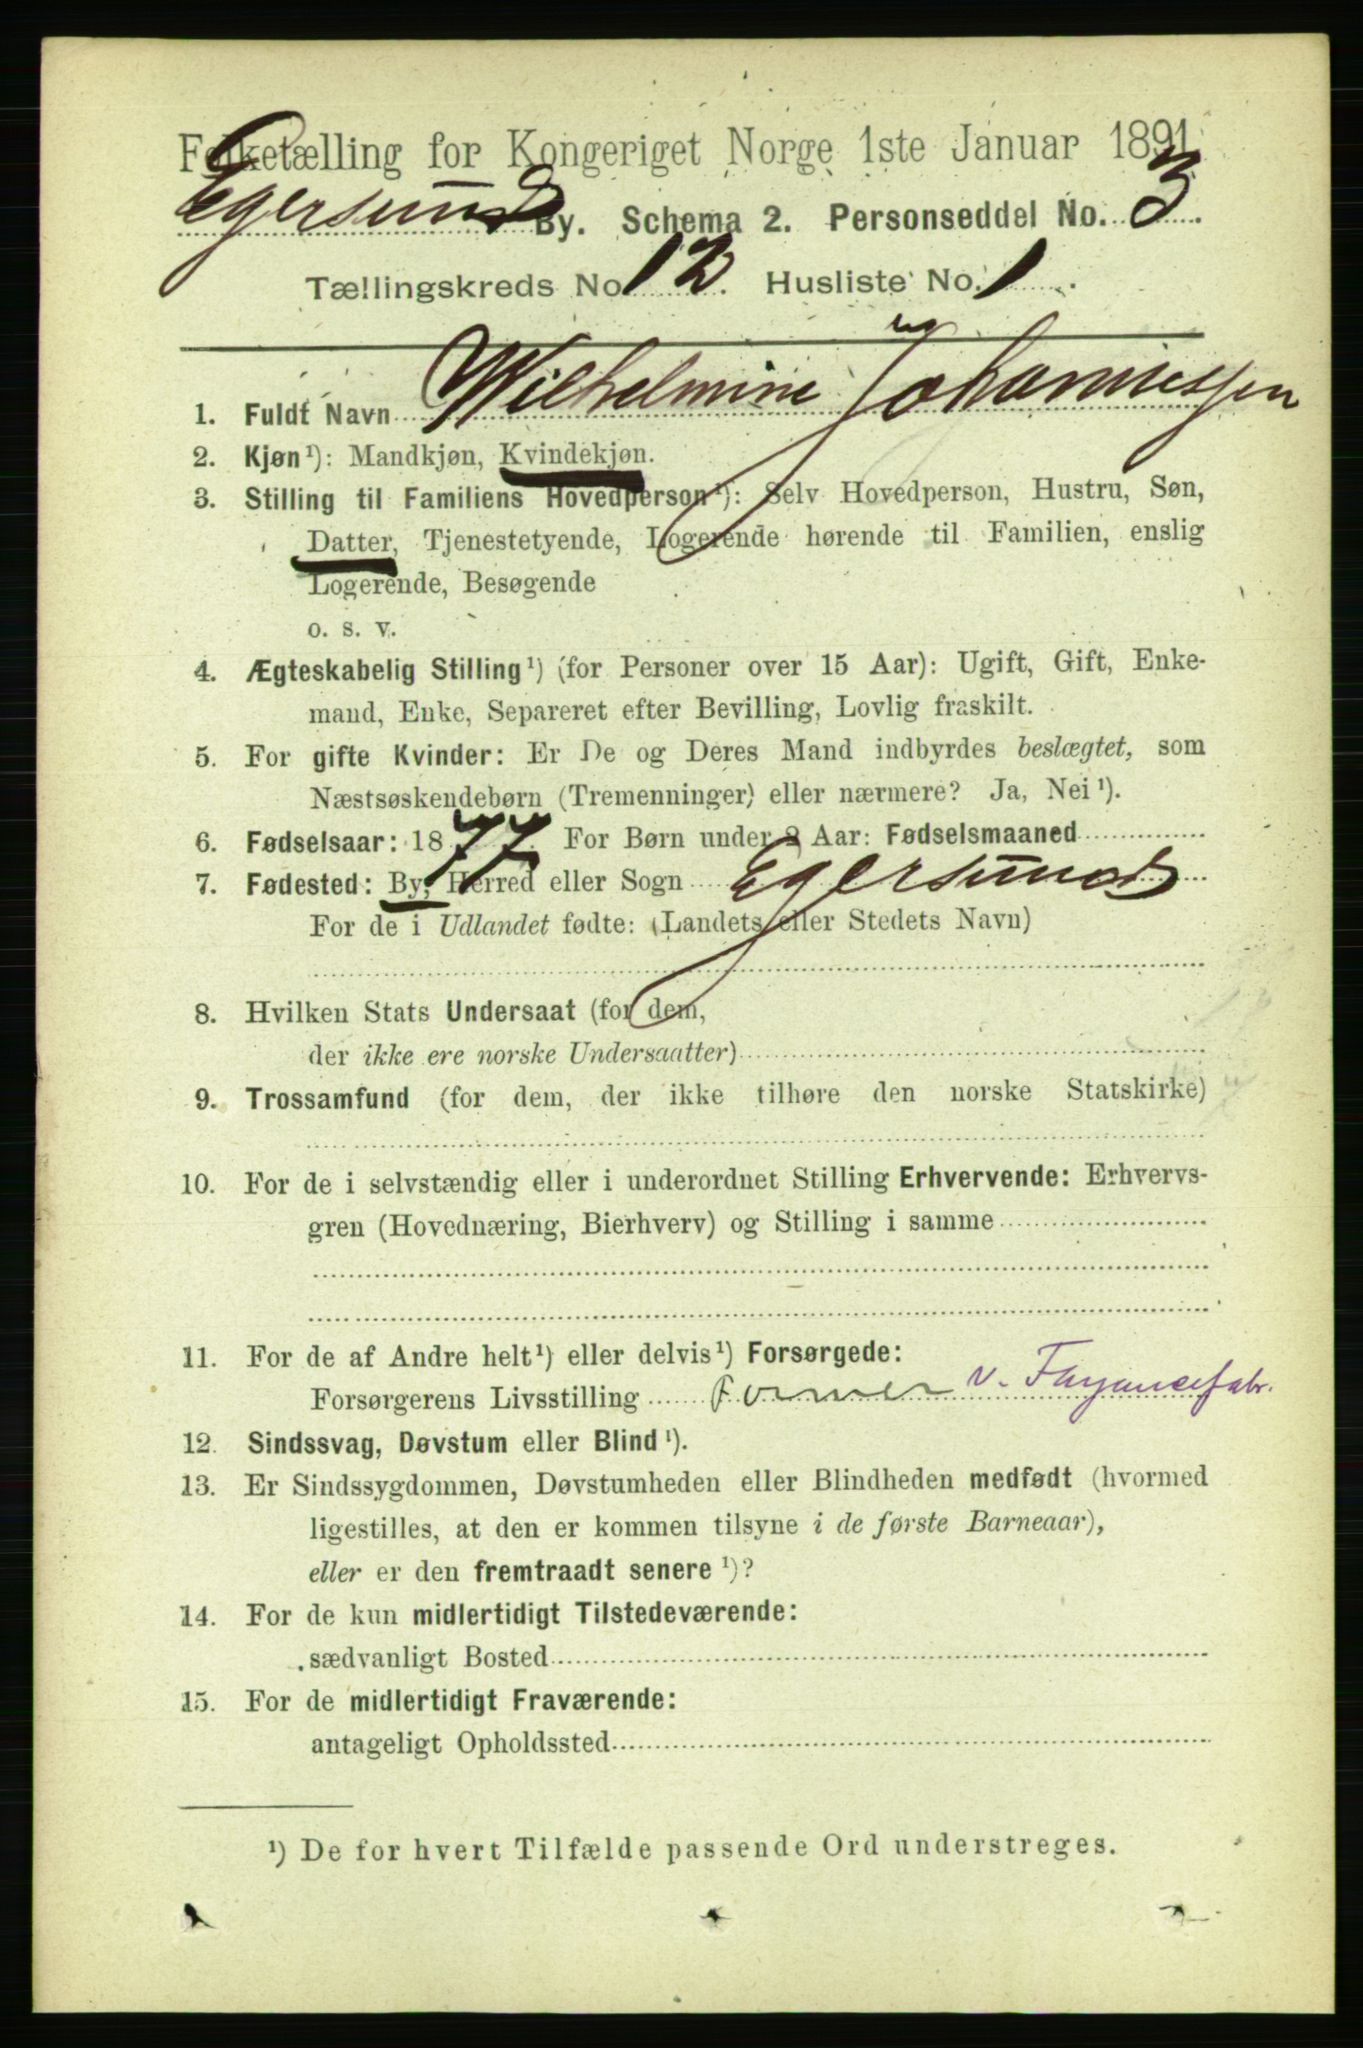 Folketælling for Kongeriget Norge 1ste Januar 1891.
Egersund By. Schema 2. Personseddel No. 3.
Tællingskreds No. 12. Husliste No. 1.
ug
1. Fuldt Navn Wilhelmine Johannessen
2. Kjøn¹): Mandkjøn, Kvindekjøn.
3. Stilling til Familiens Hovedperson¹): Selv Hovedperson, Hustru, Søn,
Datter, Tjenestetyende, Logerende hørende til Familien, enslig
Logerende, Besøgende
o. s. v.
4. Ægteskabelig Stilling¹) (for Personer over 15 Aar): Ugift, Gift, Enke-
mand, Enke, Separeret efter Bevilling, Lovlig fraskilt.
5. For gifte Kvinder: Er De og Deres Mand indbyrdes beslægtet, som
Næstsøskendebørn (Tremenninger) eller nærmere? Ja, Nei¹).
6. Fødselsaar: 1877. For Børn under 2 Aar: Fødselsmaaned
7. Fødested: By, Herred eller Sogn Egersund
For de i Udlandet fødte: (Landets eller Stedets Navn)
8. Hvilken Stats Undersaat (for dem,
der ikke ere norske Undersaatter)
9. Trossamfund (for dem, der ikke tilhøre den norske Statskirke)
10. For de i selvstændig eller i underordnet Stilling Erhvervende: Erhvervs-
gren (Hovednæring, Bierhverv) og Stilling i samme
11. For de af Andre helt¹) eller delvis¹) Forsørgede:
Forsørgerens Livsstilling Former v. Fayancefabr.
12. Sindssvag, Døvstum eller Blind¹).
13. Er Sindssygdommen, Døvstumheden eller Blindheden medfødt (hvormed
ligestilles, at den er kommen tilsyne i de første Barneaar),
eller er den fremtraadt senere¹)?
14. For de kun midlertidigt Tilstedeværende:
sædvanligt Bosted
15. For de midlertidigt Fraværende:
antageligt Opholdssted
¹) De for hvert Tilfælde passende Ord understreges.